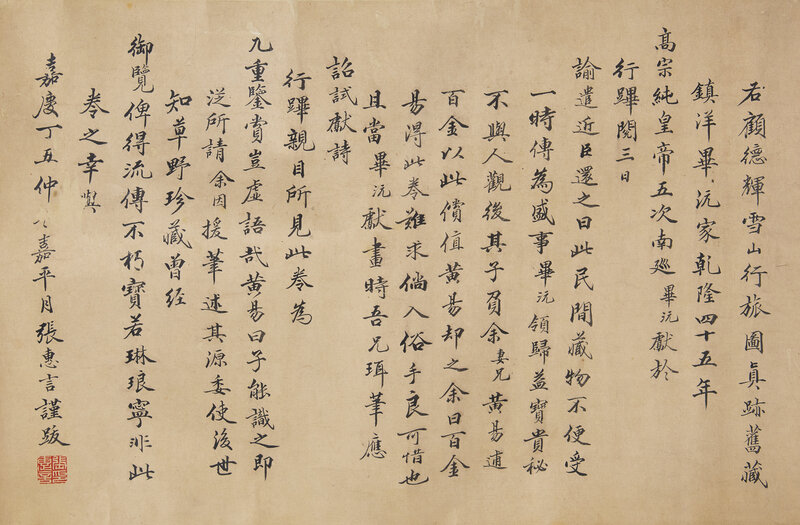 右顧德輝雪山行旅圖真跡舊藏
鎮洋畢沅家乾隆四十五年
高宗純皇帝五次南巡畢沅獻於
行蹕閱三日
諭遣近臣還之曰此民間藏物不便受
一時傳為盛事畢沅領歸益寶貴秘
不與人觀後其子負余妻兄黃易逋
百金以此償值黃易却之余曰百金
易得此卷難求倘入俗手良可惜也
且當畢沅獻畫時吾兄珥筆應
詔試獻詩
行蹕親目所見此卷為
九重鑒賞豈虛語哉黃易曰子能識之即
從所請余因援筆述其源委使後世
知草野珍藏曾經
御覽俾得流傳不朽寶若琳琅寧非此
卷之幸歟
嘉慶丁五仲 嘉平月張惠言謹跋